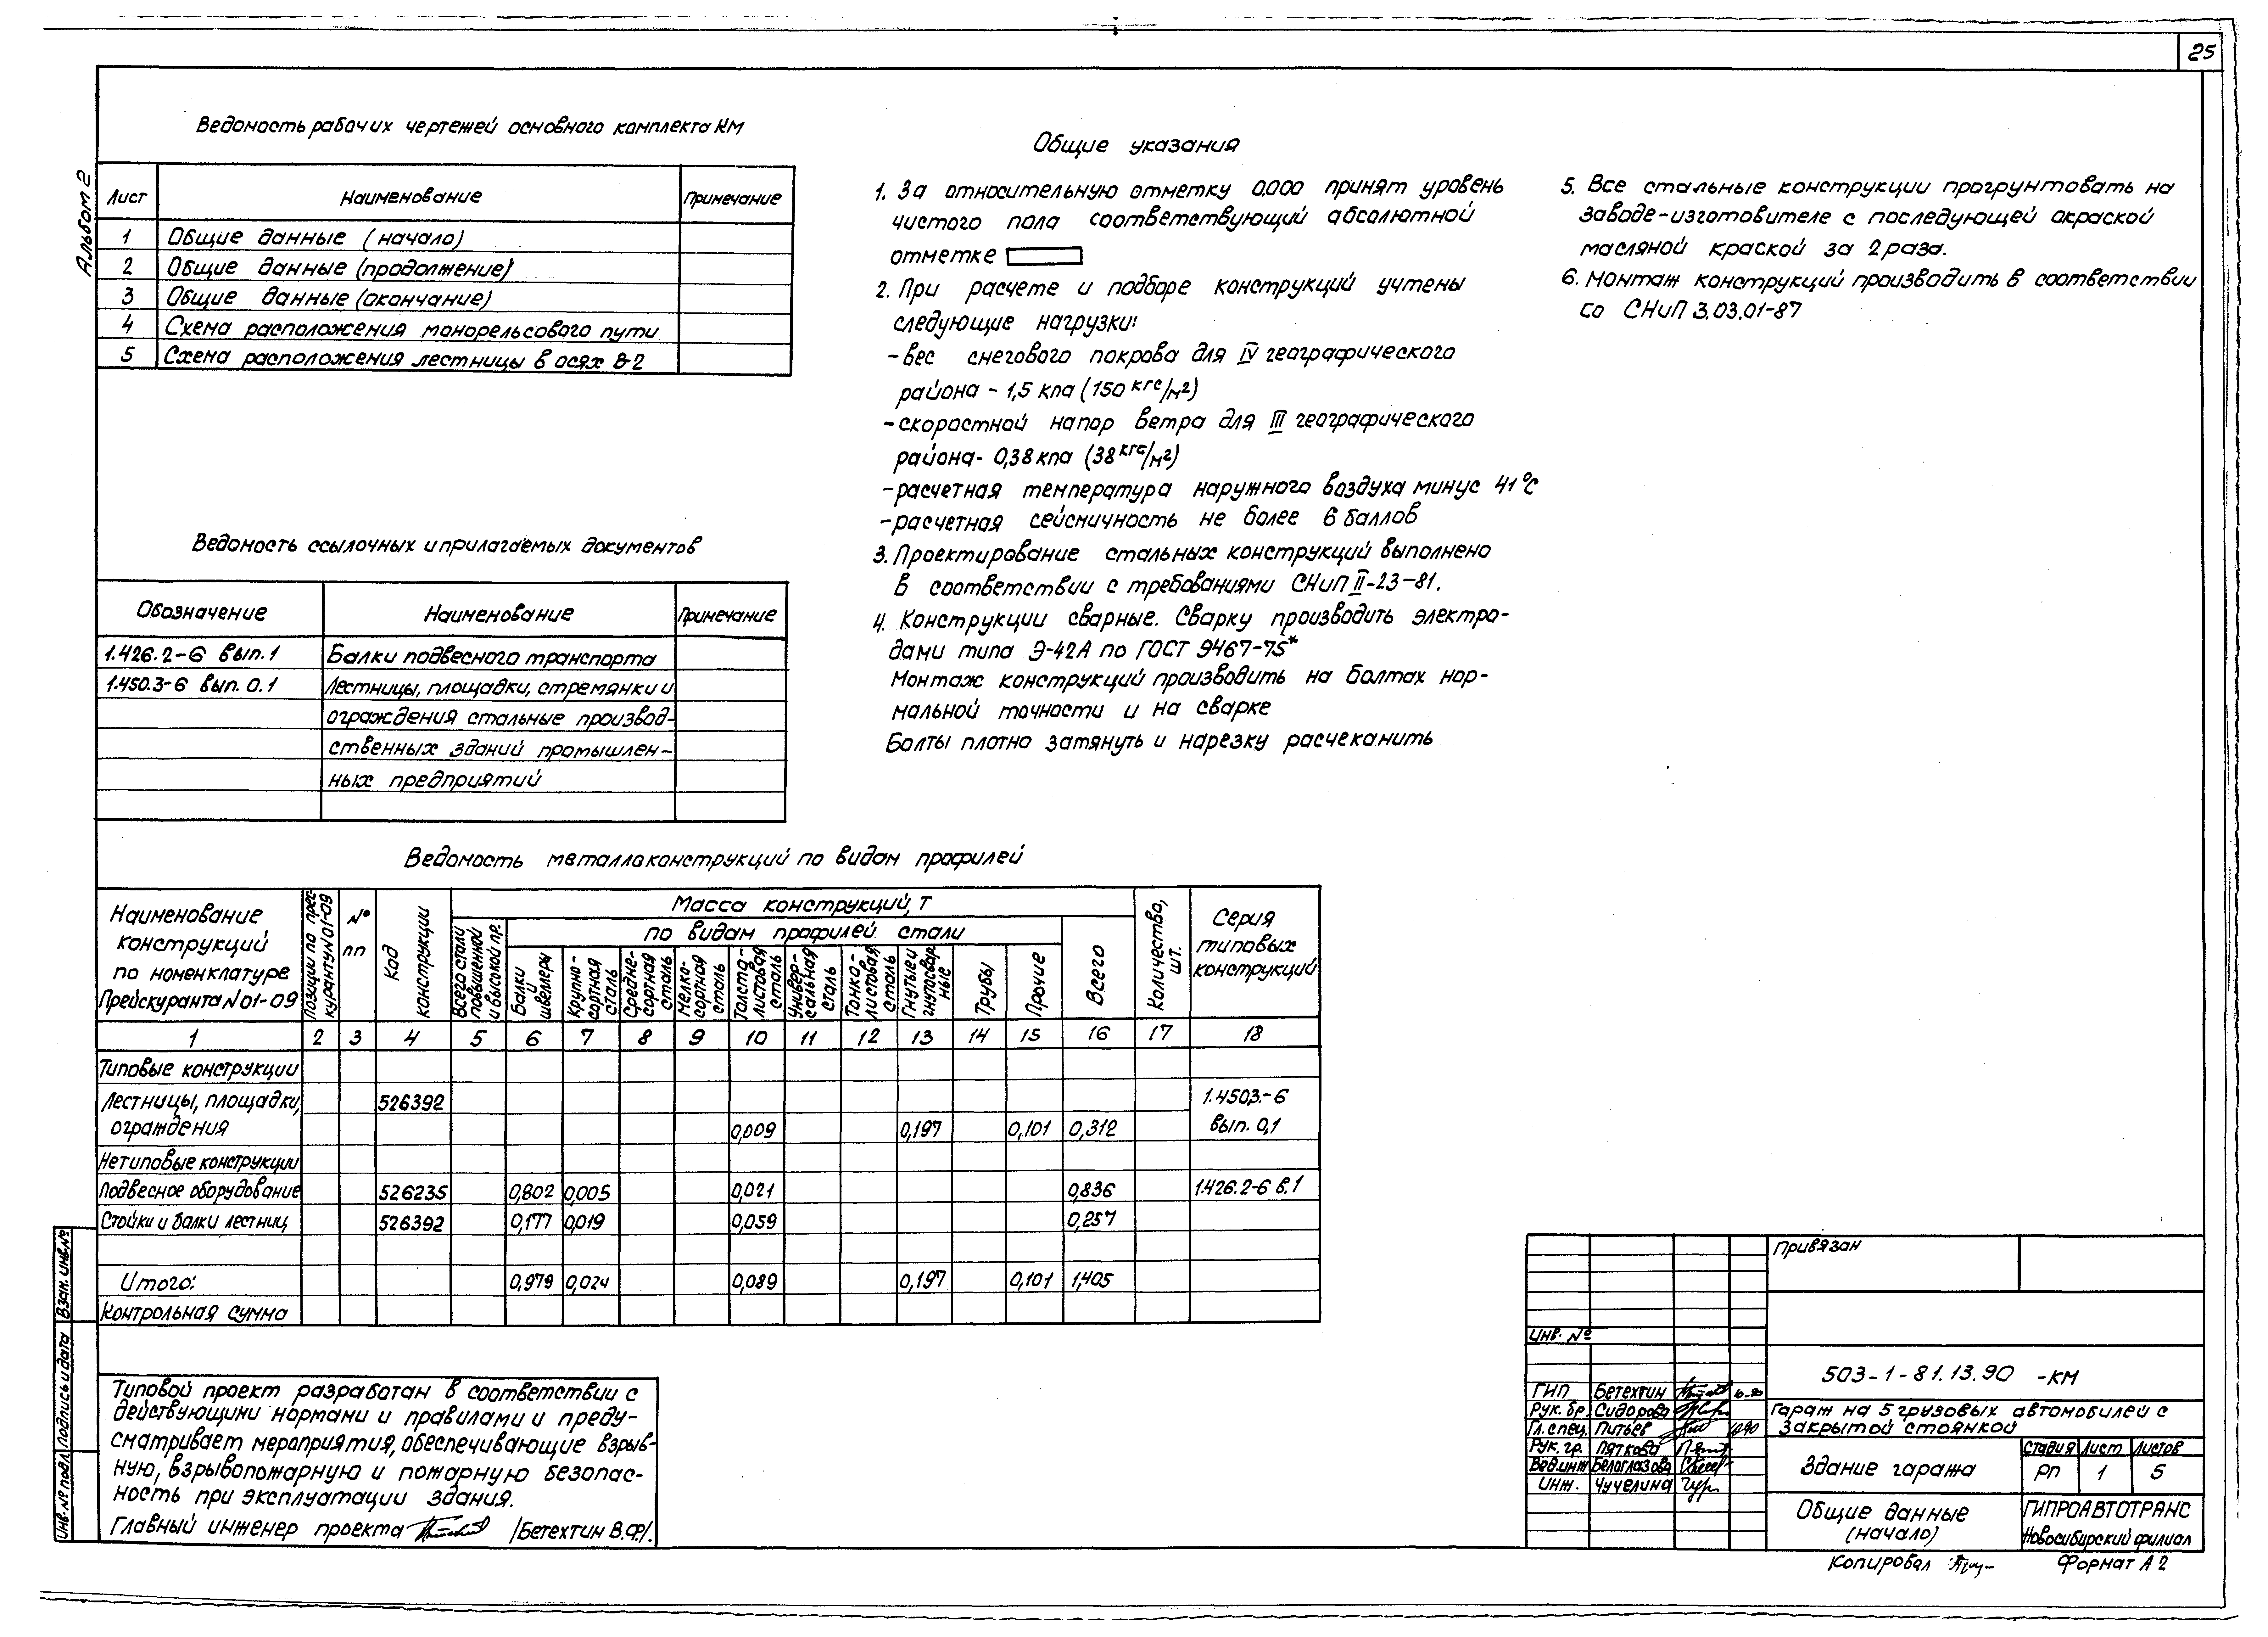 25
Альбом 2
Ведомость рабочих чертежей основного комплекта КМ
Лист Наименование Примечание
1 Общие данные (начало)
2 Общие данные (продолжение)
3 Общие данные (окончание)
4 Схема расположения монорельсового пути
5 Схема расположения лестницы в осях В-2
Ведомость ссылочных и прилагаемых документов
Обозначение Наименование Примечание
1.426.2-6 вып. 1 Балки подвесного транспорта
1.450.3-6 вып. 0.1 Лестницы, площадки, стремянки и
ограждения стальные производ-
ственных зданий промышлен-
ных предприятий
Общие указания
1. За относительную отметку 0.000 принят уровень
чистого пола соответствующий абсолютной
отметке
2. При расчете и подборе конструкций учтены
следующие нагрузки:
-вес снегового покрова для IV географического
района - 1,5 кпа (150 кгс/м2)
-скоростной напор ветра для III географического
района- 0,38 кпа (38 кгс/м2)
-расчетная температура наружного воздуха минус 41°С
-расчетная сейсмичность не более 6 баллов
3. Проектирование стальных конструкций выполнено
в соответствии с требованиями СНиП II-23-81.
4. Конструкции сварные. Сварку производить электро-
дами типа Э-42А по ГОСТ 9467-75*
Монтаж конструкций производить на болтах нор-
мальной точности и на сварке
Болты плотно затянуть и нарезку расчеканить
5. Все стальные конструкции прогрунтовать на
заводе-изготовителе с последующей окраской
масляной краской за 2 раза.
6. Монтаж конструкций производить в соответствии
со СНиП 3.03.01-87
Ведомость металлоконструкций по видам профилей
Наименование конструкций по номенклатуре Прейскуранта N01-09
Позиции по прейскуранту N01-09
№ пп
Код конструкции
Масса конструкций, т
Всего стали повышенной и высокой пр.
по видам профилей стали
Балки и швеллеры
Крупно-сортная сталь
Средне-сортная сталь
Мелко-сортная сталь
Толсто-листовая сталь
Универ-сальная сталь
Тонко-листовая сталь
Гнутые и гнутосвар-ные
Трубы
Прочие
Всего
Количество, шт.
Серия типовых конструкций
1 2 3 4 5 6 7 8 9 10 11 12 13 14 15 16 17 18
Типовые конструкции
Лестницы, площадки, 526392 1.450.3-6
ограждения 0,009 0,197 0,101 0,312 вып. 0,1
Нетиповые конструкции
Подвесное оборудование 526235 0,802 0,005 0,021 0,836 1.426.2-6 в.1
Стойки и балки лестниц 526392 0,177 0,019 0,059 0,257
Итого: 0,979 0,024 0,089 0,197 0,101 1,405
Контрольная сумма
Типовой проект разработан в соответствии с
действующими нормами и правилами и преду-
сматривает мероприятия, обеспечивающие взрыв-
ную, взрывопожарную и пожарную безопас-
ность при эксплуатации здания.
Главный инженер проекта /Бетехтин В.Ф/.
Взам. инв.№
Подпись и дата
Инв. № подл.
Привязан
Инв. №
503-1-81.13.90 -КМ
ГИП Бетехтин 10-90
Рук. бр. Сидорова
Гл. спец. Питьев
Рук. гр. Пяткова
Вед.инж Белоглазова
Инж. Чучелина
Гараж на 5 грузовых автомобилей с
закрытой стоянкой
Здание гаража
Стадия Лист Листов
РП 1 5
Общие данные
(начало)
ГИПРОАВТОТРАНС
Новосибирский филиал
Копировал
Формат А2